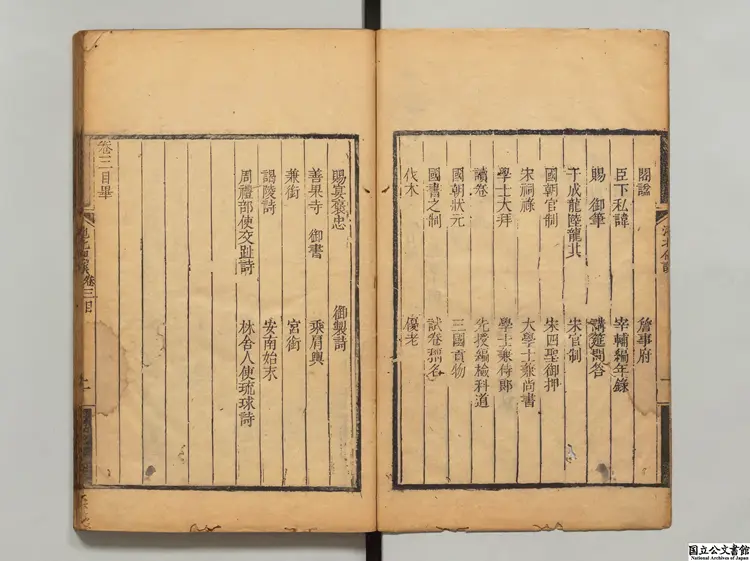 池北偶談
閣諡 詹事府
臣下私諱 宰輔編年錄
賜 御筆 講筵問答
于成龍陸龍其 宋官制
國朝官制 宋四聖御押
宋祠祿 大學士兼尚書
學士大拜 學士兼侍郎
讀卷 先授編檢科道
國朝狀元 三國貢物
國書之制 試卷稱名
伐木 優老
賜宴褒忠 御製詩
善果寺 御書 乘肩輿
兼銜 宮銜
謁陵詩 安南始末
周禮部使交趾詩 林舍人使琉球詩
卷三目畢
卷三目
国立公文書館
National Archives of Japan